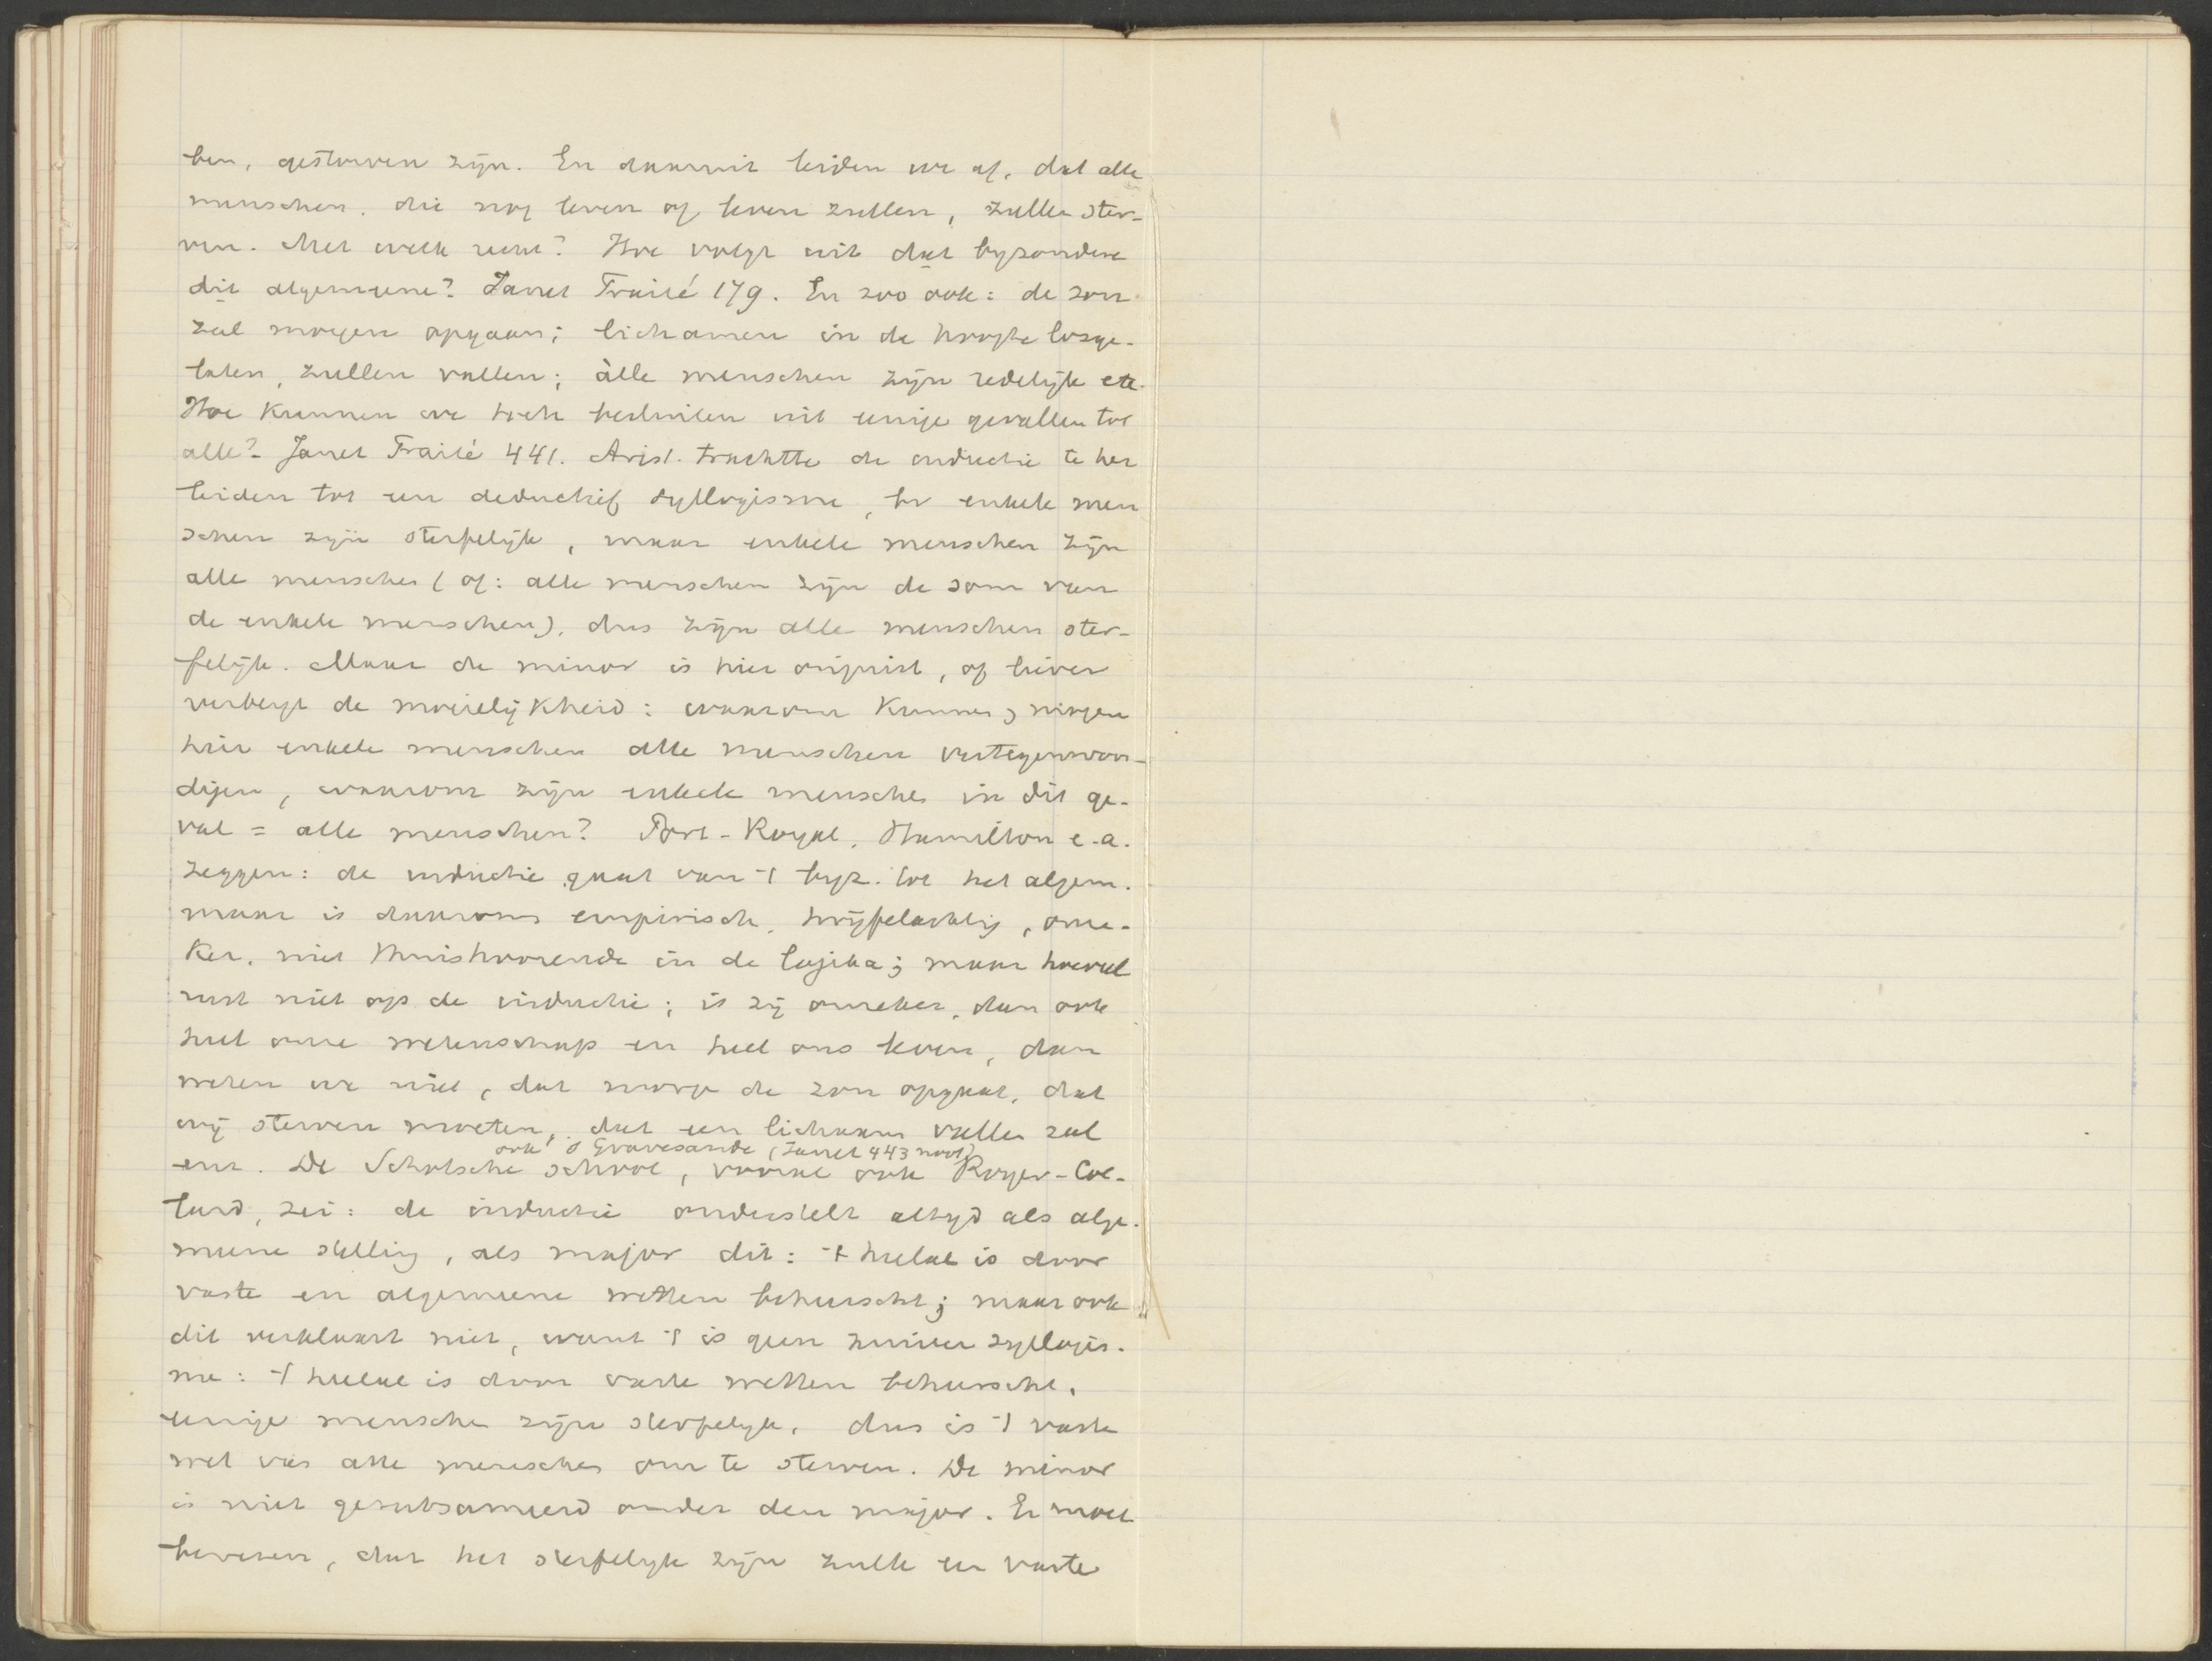 ben, gestorven zijn. En daaruit leiden we af, dat alle
menschen, die nog leven of leven zullen, zullen ster-
ven. Met welk recht? Hoe volgt uit dat byzondere
dit algemeene? Janet Traité 179. En zoo ook: de zon
zal morgen opgaan; lichamen in de hoogte losge-
laten, zullen vallen; alle menschen zijn redelijk etc.
Hoe kunnen we toch besluiten uit eenige gevallen tot
alle? Janet Traité 441. Arist. trachtte de inductie te her
leiden tot een deductief syllogisme, bv enkele men
schen zijn sterfelijk, maar enkele menschen zijn
alle menschen (of: alle menschen zijn de som van
de enkele menschen), dus zijn alle menschen ster-
felijk. Maar de minor is hier onjuist, of liever
verbergt de moeielijkheid: waarom kunnen, mogen
hier enkele menschen alle menschen vertegenwoor-
digen, waarom zijn enkele menschen in dit ge-
val = alle menschen? Port-Royal, Hamilton e.a.
zeggen: de inductie gaat van 't byz. tot het algem.
maar is daarom empirisch, twijfelachtig, onze-
ker, niet thuishoorende in de logika; maar hoeveel
rust niet op de inductie; is zij onzeker, dan ook
heel onze wetenschap en heel ons leven, dan
weten we niet, dat morge de zon opgaat, dat
wij sterven moeten, dat een lichaam vallen zal
ook 's Gravesande (Janet 443 noot)
enz. De Schotsche school, vooral ook Royer-Col-
lard, zei: de inductie onderstelt altyd als alge-
meene stelling, als major dit: 't heelal is door
vaste en algemeene wetten beheerscht; maar ook
dit verklaart niet, want 't is geen zuiver syllogis-
me: 't heelal is door vaste wetten beheerscht,
eenige menschen zijn sterfelyk, dus is 't vaste
wet van alle menschen om te sterven. De minor
is niet gesubsumeerd onder den major. Er moet
bewezen, dat het sterfelyk zijn zulk een vaste